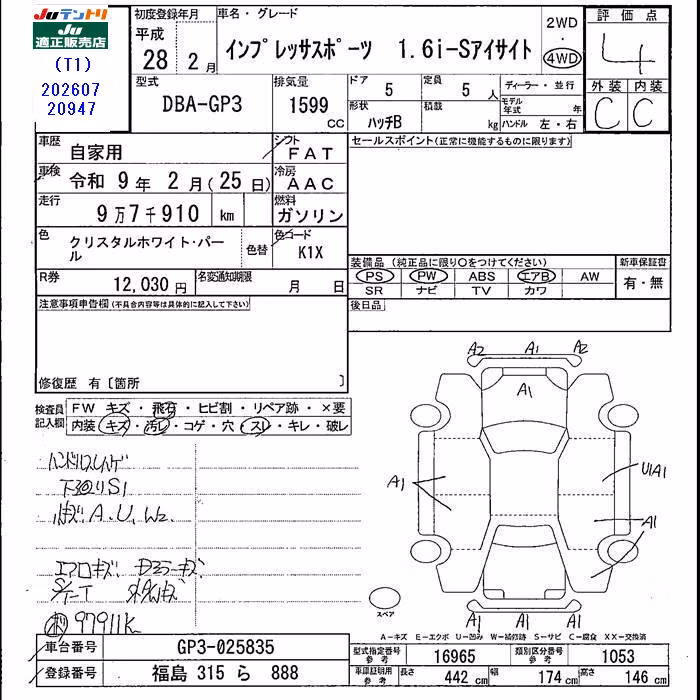 Juテントリ
Ju
適正販売店
(T1)
202607
20947
初度登録年月
平成
28 2月
車名・グレード
インプレッサスポーツ 1.6i-Sアイサイト
2WD
・
4WD
評価点
4
外装 内装
C C
型式
DBA-GP3
排気量
1599
CC
ドア
5
定員
5 人
形状
ハッチB
積載
kg
ディーラー・並行
モデル年式 年
ハンドル 左・右
車歴
自家用
シフト
FAT
車検
令和 9年 2月(25日)
冷房
AAC
走行
9万7千910 km
燃料
ガソリン
色
クリスタルホワイト・パール
色替
色コード
K1X
R券
12,030円
名変通知期限
月 日
セールスポイント(正常に機能するものに限ります)
装備品(純正品に限り〇をつけてください)
PS PW ABS エアB AW
SR ナビ TV カワ
新車保証書
有・無
後日品
注意事項申告欄(不具合内容等は具体的に記入して下さい)
修復歴 有〔箇所 〕
検査員
記入欄
FW キズ・飛石・ヒビ割・リペア跡・×要
内装・キズ・汚レ・コゲ・穴・スレ・キレ・破レ
下廻りS1
A.U.W2.
エアロキズ
97911K
A2 A1 A2
A1
A1
U1A1
A1
A1 A1 A1
スペア
A-キズ E-エクボ U-凹み W-補修跡 S-サビ C-腐食 XX-交換済
車台番号
GP3-025835
登録番号
福島 315 ら 888
型式指定番号
参考
16965
類別区分番号
参考
1053
車庫証明用
参考
長さ 442 cm
幅 174 cm
高さ 146 cm